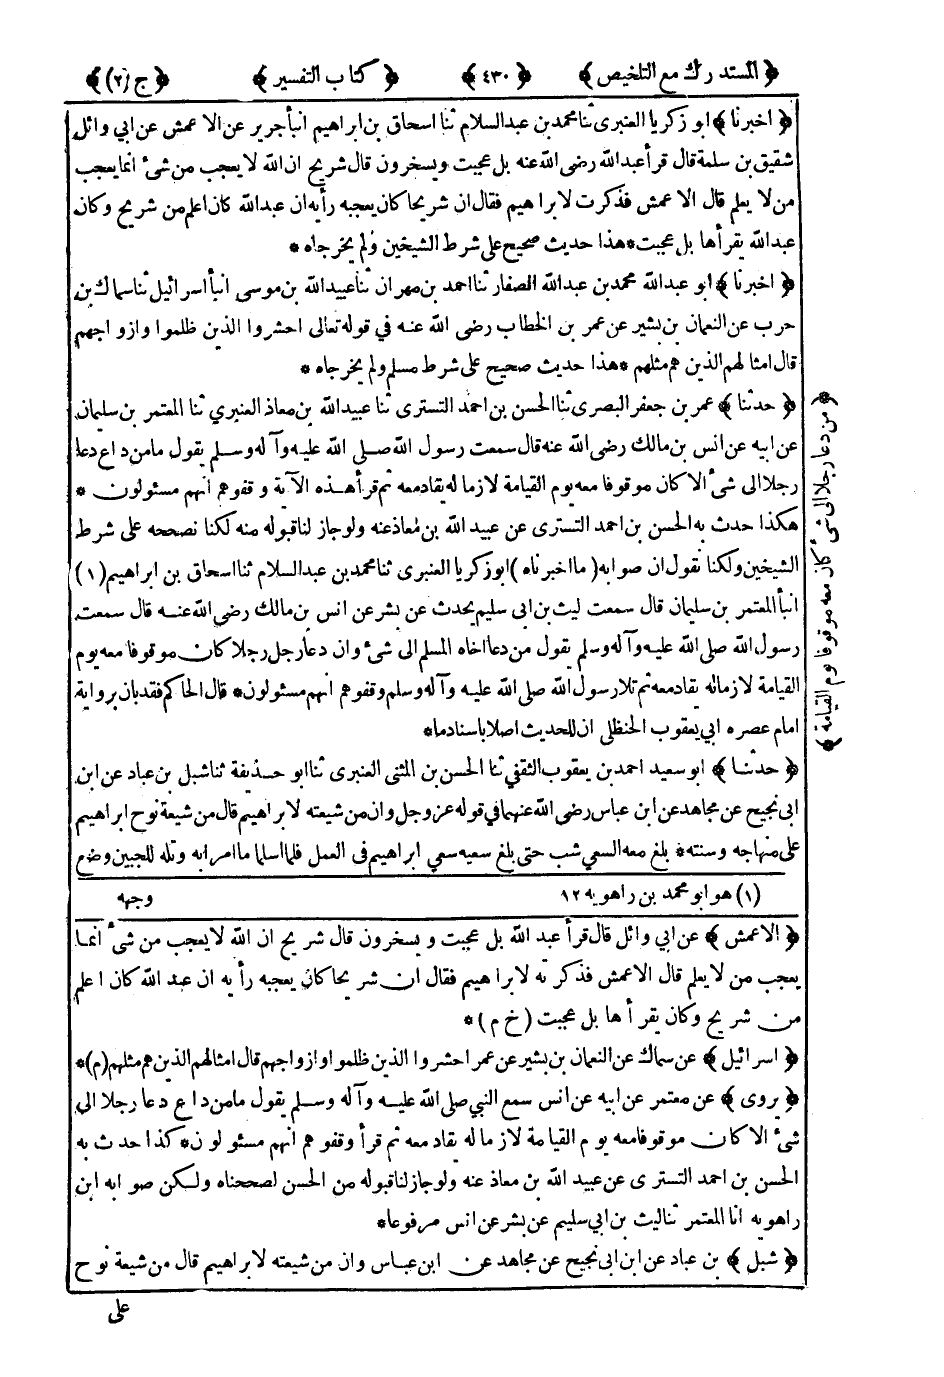 ﴿ المستدرك مع التلخيص ﴾ ﴿ ٤٣٠ ﴾ ﴿ كتاب التفسير ﴾ ﴿ ج (٢) ﴾
﴿ اخبرنا ﴾ ابو زكريا العنبرى ثنا محمد بن عبدالسلام ثنا اسحاق بن ابراهيم انبأ جرير عن الاعمش عن ابي وائل
شقيق بن سلمة قال قرأ عبدالله رضى الله عنه بل عجبت ويسخرون قال شريح ان الله لا يعجب من شئ انما يعجب
من لا يعلم قال الاعمش فذكرت لابراهيم فقال ان شريحا كان يعجبه رأيه ان عبدالله كان اعلم من شريح وكان
عبدالله يقرأها بل عجبت * هذا حديث صحيح على شرط الشيخين ولم يخرجاه *
﴿ اخبرنا ﴾ ابو عبدالله محمد بن عبدالله الصفار ثنا احمد بن مهران ثنا عبيدالله بن موسى انبأ اسرائيل ثنا سماك بن
حرب عن النعمان بن بشير عن عمر بن الخطاب رضى الله عنه في قوله تعالى احشروا الذين ظلموا وازواجهم
قال امثالهم الذين هم مثلهم * هذا حديث صحيح على شرط مسلم ولم يخرجاه *
﴿ حدثنا ﴾ عمر بن جعفر البصرى ثنا الحسن بن احمد التسترى ثنا عبيدالله بن معاذ العنبري ثنا المعتمر بن سليمان
عن ابيه عن انس بن مالك رضى الله عنه قال سمعت رسول الله صلى الله عليه وآله وسلم يقول ما من داع دعا
رجلا الى شئ الا كان موقوفا معه يوم القيامة لازما له يقاد معه ثم قرأ هذه الآية وقفوهم انهم مسئولون *
هكذا حدث به الحسن بن احمد التسترى عن عبيد الله بن معاذ عنه ولو جاز لنا قبوله منه لكنا نصححه على شرط
الشيخين ولكنا نقول ان صوابه ( ما اخبرناه ) ابو زكريا العنبرى ثنا محمد بن عبدالسلام ثنا اسحاق بن ابراهيم (١)
انبأ المعتمر بن سليمان قال سمعت ليث بن ابى سليم يحدث عن بشر عن انس بن مالك رضى الله عنه قال سمعت
رسول الله صلى الله عليه وآله وسلم يقول من دعا اخاه المسلم الى شئ وان دعا رجل رجلا كان موقوفا معه يوم
القيامة لازما له يقاد معه ثم تلا رسول الله صلى الله عليه وآله وسلم وقفوهم انهم مسئولون * قال الحاكم فقد بان برواية
امام عصره ابي يعقوب الحنظلى ان للحديث اصلا باسناد ما *
﴿ حدثنا ﴾ ابو سعيد احمد بن يعقوب الثقفي ثنا الحسن بن المثنى العنبرى ثنا ابو حذيفة ثنا شبل بن عباد عن ابن
ابى نجيح عن مجاهد عن ابن عباس رضى الله عنهما في قوله عز وجل وان من شيعته لابراهيم قال من شيعة نوح ابراهيم
على منهاجه وسنته * بلغ معه السعي شب حتى بلغ سعيه سعي ابراهيم فى العمل فلما اسلما ما امرا به وتله للجبين وضع
(١) هو ابو محمد بن راهويه ١٢ وجهه
﴿ الاعمش ﴾ عن ابي وائل قال قرأ عبد الله بل عجبت ويسخرون قال شريح ان الله لا يعجب من شئ انما
يعجب من لا يعلم قال الاعمش فذكرته لابراهيم فقال ان شريحا كان يعجبه رأيه ان عبد الله كان اعلم
من شريح وكان يقرأها بل عجبت ( خ م ) *
﴿ اسرائيل ﴾ عن سماك عن النعمان بن بشير عن عمر احشروا الذين ظلموا وازواجهم قال امثالهم الذين هم مثلهم (م) *
﴿ يروى ﴾ عن معتمر عن ابيه عن انس سمع النبي صلى الله عليه وآله وسلم يقول ما من داع دعا رجلا الى
شئ الا كان موقوفا معه يوم القيامة لازما له يقاد معه ثم قرأ وقفوهم انهم مسئولون * كذا حدث به
الحسن بن احمد التسترى عن عبيد الله بن معاذ عنه ولو جاز لنا قبوله من الحسن لصححناه ولكن صوابه ابن
راهويه انا المعتمر ثنا ليث بن ابي سليم عن بشر عن انس مرفوعا *
﴿ شبل ﴾ بن عباد عن ابن ابى نجيح عن مجاهد عن ابن عباس وان من شيعته لابراهيم قال من شيعة نوح
على
﴿ من دعا رجلا الى شئ كان معه موقوفا يوم القيامة ﴾